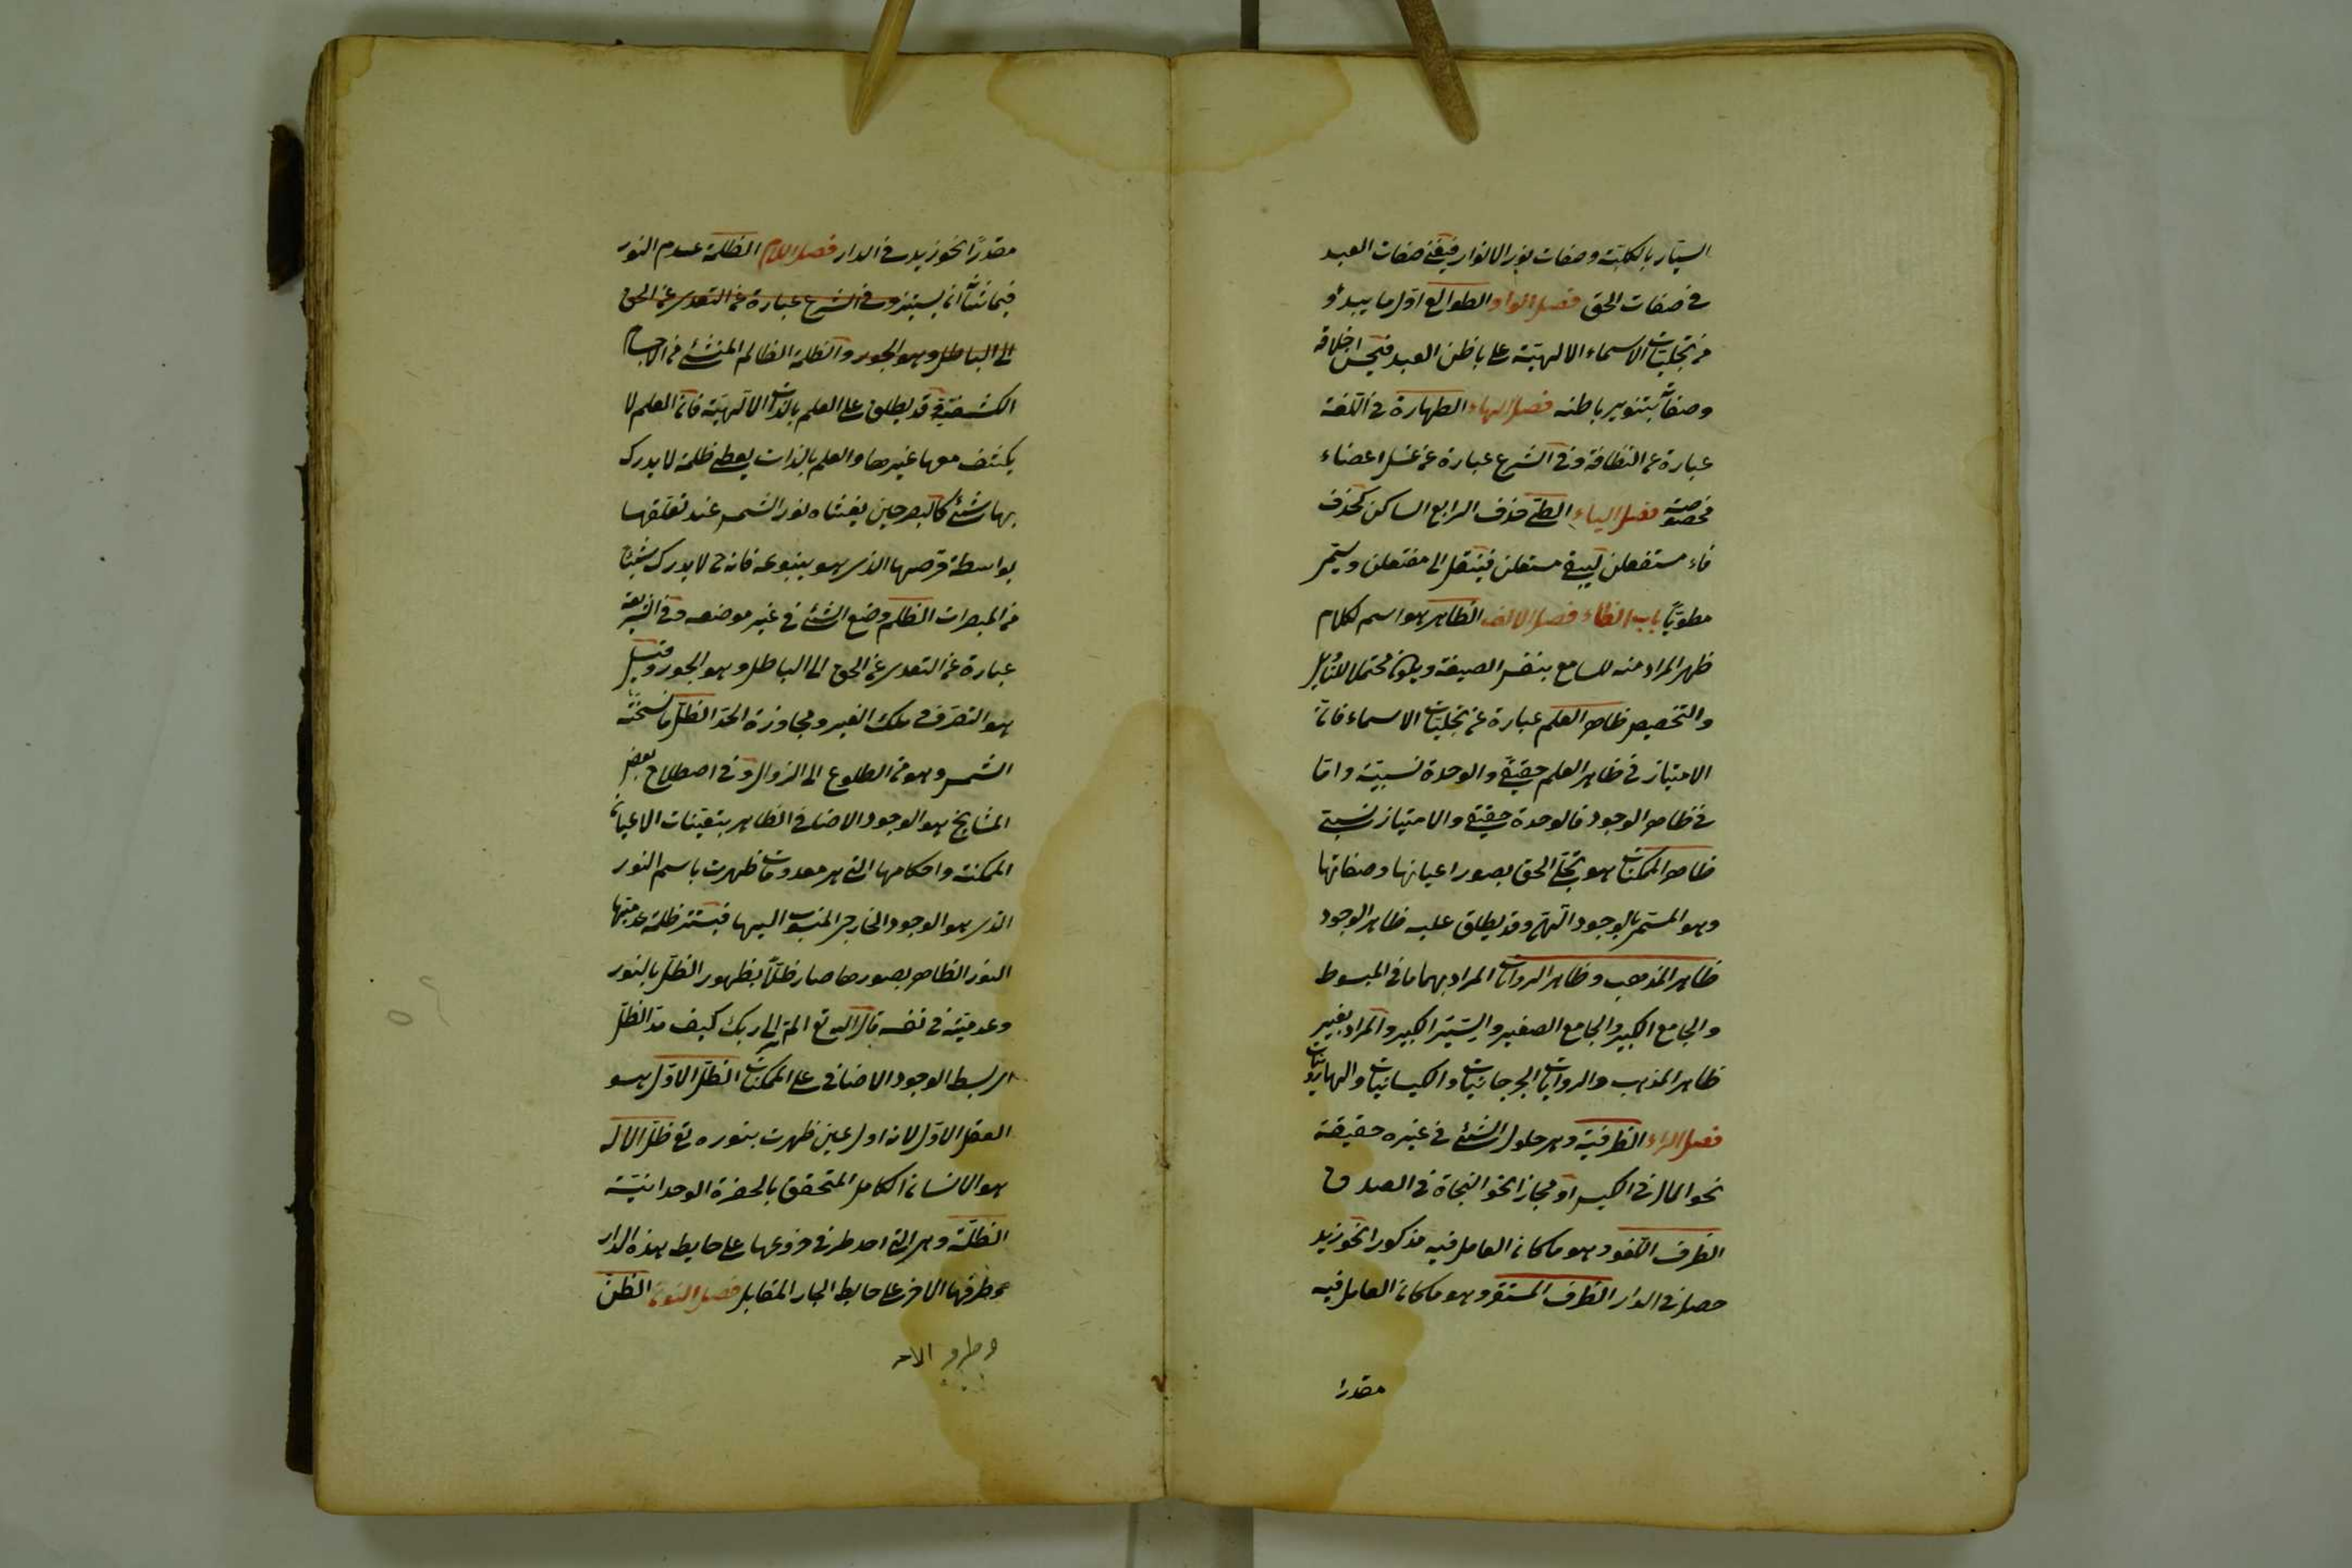 السيّار بالكليّة وصفات نور الانوار فيفنى صفات العبد
في صفات الحق فصل الواو الطوالع اوّل ما يبدو
من تجليّات الاسماء الالهيّة على باطن العبد فيحسن اخلاقه
وصفاته بتنوير باطنه فصل الهاء الطهارة في اللّغة
عبارة عن النظافة وفي الشرع عبارة عن غسل اعضاء
مخصوصة فصل الياء الطىّ حذف الرابع الساكن كحذف
فاء مستفعلن ليبقى مستعلن فينتقل الى مفتعلن ويسمّى
مطويّا باب الظاء فصل الالف الظاهر هو اسم لكلام
ظهر المراد منه للسامع بنفس الصيغة ويكون محتملا للتأويل
والتخصيص ظاهر العلم عبارة عن تجليّات الاسماء فانّ
الامتياز في ظاهر العلم حقيقىّ والوحدة نسبيّة وامّا
في ظاهر الوجود فالوحدة حقيقية والامتياز نسبىّ
ظاهر الممكنات هو تجلّى الحق بصور اعيانها وصفاتها
وهو المسمّى بالوجود الالهى وقد يطلق عليه ظاهر الوجود
ظاهر المذهب وظاهر الروايات المراد بهما ما في المبسوط
والجامع الكبير والجامع الصغير والسير الكبير والمراد بغير
ظاهر المذهب والروايات الجرجانيات والكيسانيات والهارونيات
فصل الراء الظرفيّة وهى حلول الشئ في غيره حقيقة
نحو المال في الكيس او مجازا نحو النجاة في الصدق
الظرف اللغو وهو ما كان العامل فيه مذكورا نحو زيد
حصل في الدار الظرف المستقر وهو ما كان العامل فيه
مقدرا
مقدرًا نحو زيد في الدار فصل اللام الظلمة عدم النور
فيما شأنه ان يستنير وفي الشرع عبارة عن التعدى عن الحق
الى الباطل وهو الجور والظلمة الظالم المنشئ من الاجسام
الكثيفة وقد يطلق على العلم بالذات الالهيّة فانّ العلم لا
يكشف معها غيرها والعلم بالذات يعطى ظلمة لا يدرك
بها شئ كالبصر حين يغشاه نور الشمس عند تعلّقها
بواسطة قرصها الذى هو ينبوعه فانه ح لا يدرك شيئا
من المبصرات الظلم وضع الشئ في غير موضعه وفي الشريعة
عبارة عن التعدى عن الحق الى الباطل وهو الجور وقيل
هو التصرف في ملك الغير ومجاوزة الحد الظلّ ما نسخته
الشمس وهو من الطلوع الى الزوال وفي اصطلاح بعض
المشايخ هو الوجود الاضافى الظاهر بتعينات الاعيان
الممكنة واحكامها التى هى معدومات ظهرت باسم النور
الذى هو الوجود الخارجى المنسوب اليها فيستر ظلمة عدميتها
النور الظاهر بصورها صار ظلّا بظهور الظلّ بالنور
وعدميّته في نفسه قال الله تع الم تر الى ربك كيف مدّ الظلّ
اى بسط الوجود الاضافى على الممكنات الظلّ الاوّل هو
العقل الاوّل لانه اول عين ظهرت بنوره تع ظلّ الاله
هو الانسان الكامل المتحقق بالحضرة الوحدانيّة
الظلّة وهى التى احد طرفى جذوعها على حايط هذه الدار
وطرفها الاخر على حايط الجار المقابل فصل النون الظنّ
وطرف الاخر